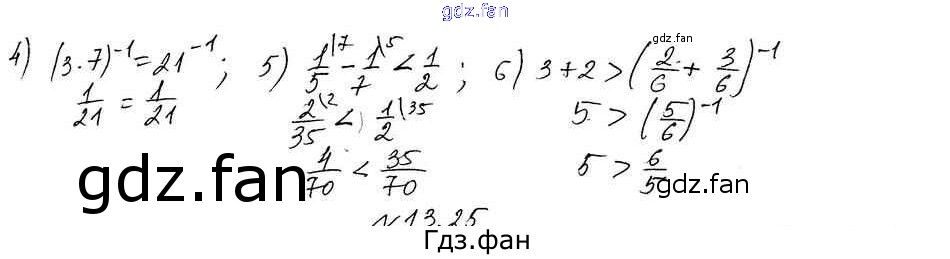 gdz.fan
4) (3·7)⁻¹ = 21⁻¹; 5) 1/5\7 - 1/7\5 < 1/2; 6) 3+2 > (2/6 + 3/6)⁻¹
gdz.fan
1/21 = 1/21 2/35\2 < 1/2\35 5 > (5/6)⁻¹
4/70 < 35/70 5 > 6/5
gdz.fan
gdz.fan
N13.25
Гдз.фан